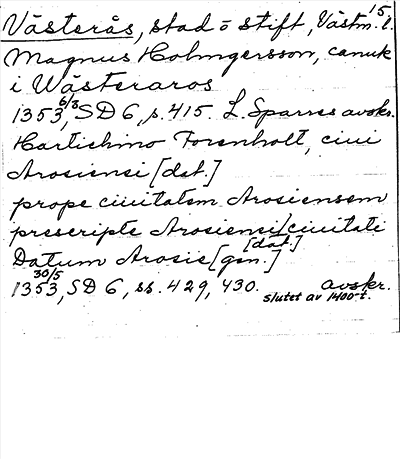 15.
Västerås, stad o stift, Västm. l.
Magnus Holmgersson, canuk
i Wästeraros
1353 6/3, SD 6, s. 415. L. Sparres avskr.
Hartichino Forenholt, ciui
Arosiensi [dat.]
prope ciuitatem Arosiensem
prescripte Arosiensi ciuitati
[dat.]
Datum Arosie [gen.]
1353 30/5, SD 6, ss. 429, 430. avskr.
slutet av 1400-t.